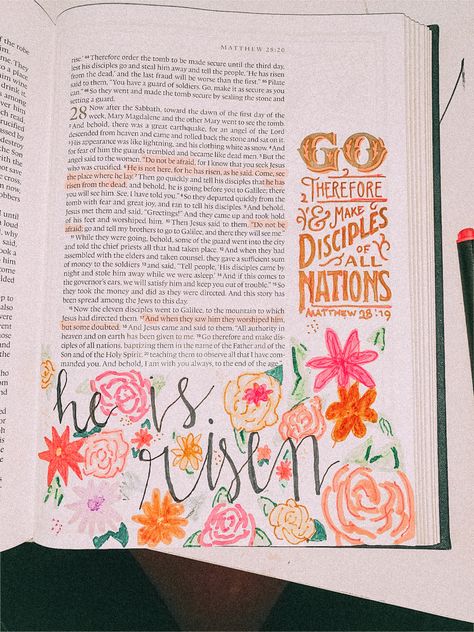 of the robe
MATTHEW 28:20
rise.' 64 Therefore order the tomb to be made secure until the third day,
lest his disciples go and steal him away and tell the people, 'He has risen
from the dead,' and the last fraud will be worse than the first." 65 Pilate
said to them, "You have a guard of soldiers. Go, make it as secure as you
can." 66 So they went and made the tomb secure by sealing the stone and
setting a guard.
28 Now after the Sabbath, toward the dawn of the first day of the
week, Mary Magdalene and the other Mary went to see the tomb.
2 And behold, there was a great earthquake, for an angel of the Lord
descended from heaven and came and rolled back the stone and sat on it.
3 His appearance was like lightning, and his clothing white as snow. 4 And
for fear of him the guards trembled and became like dead men. 5 But the
angel said to the women, "Do not be afraid, for I know that you seek Jesus
who was crucified. 6 He is not here, for he has risen, as he said. Come, see
the place where he lay. 7 Then go quickly and tell his disciples that he has
risen from the dead, and behold, he is going before you to Galilee; there
you will see him. See, I have told you." 8 So they departed quickly from the
tomb with fear and great joy, and ran to tell his disciples. 9 And behold,
Jesus met them and said, "Greetings!" And they came up and took hold
of his feet and worshiped him. 10 Then Jesus said to them, "Do not be
afraid; go and tell my brothers to go to Galilee, and there they will see me."
11 While they were going, behold, some of the guard went into the city
and told the chief priests all that had taken place. 12 And when they had
assembled with the elders and taken counsel, they gave a sufficient sum
of money to the soldiers 13 and said, "Tell people, 'His disciples came by
night and stole him away while we were asleep.' 14 And if this comes to
the governor's ears, we will satisfy him and keep you out of trouble." 15 So
they took the money and did as they were directed. And this story has
been spread among the Jews to this day.
16 Now the eleven disciples went to Galilee, to the mountain to which
Jesus had directed them. 17 And when they saw him they worshiped him,
but some doubted. 18 And Jesus came and said to them, "All authority in
heaven and on earth has been given to me. 19 Go therefore and make dis-
ciples of all nations, baptizing them in the name of the Father and of the
Son and of the Holy Spirit, 20 teaching them to observe all that I have com-
manded you. And behold, I am with you always, to the end of the age."
GO
THEREFORE
& MAKE
DISCIPLES
OF
ALL
NATIONS
MATTHEW 28:19
he is
risen